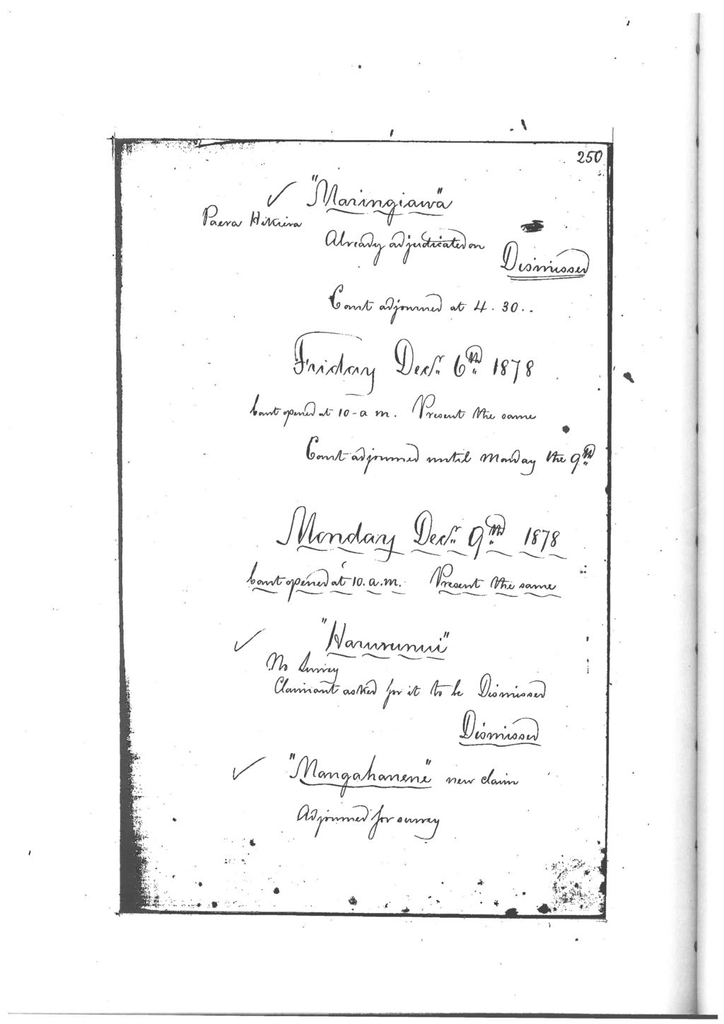 250
✓ "Maringiawa"
Paera Hikiera
Already adjudicated on
Dismissed
Court adjourned at 4.30..
Friday Decr. 6th 1878
Court opened at 10-a m. Present the same
Court adjourned until Monday the 9th
Monday Decr. 9th 1878
Court opened at 10.a.m. Present the same
✓ "Harurunui"
No Survey
Claimant asked for it to be Dismissed
Dismissed
✓ "Mangahanene" new claim
Adjourned for survey